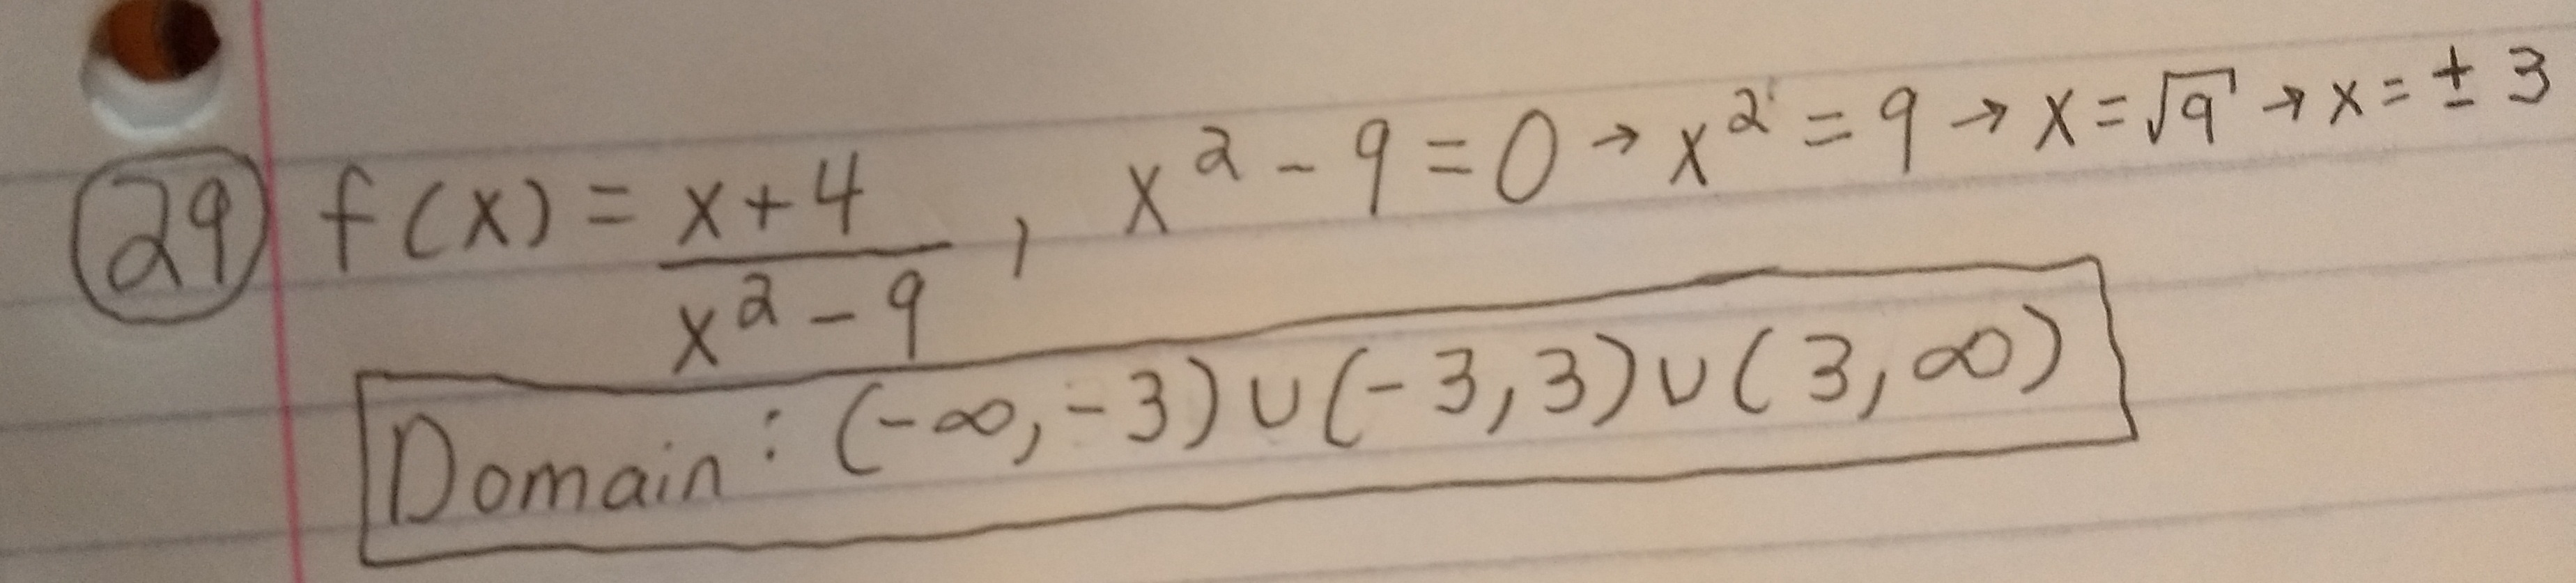 29 f(x) = x+4 / x² - 9 , x² - 9 = 0 → x² = 9 → x = √9 → x = ± 3
Domain : (-∞, -3) ∪ (-3, 3) ∪ (3, ∞)